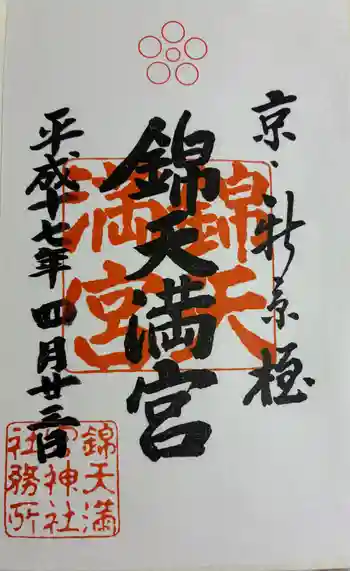 京・新京極
錦天満宮
平成十七年四月廿三日
錦天
満宮
錦天満
宮神社
社務所